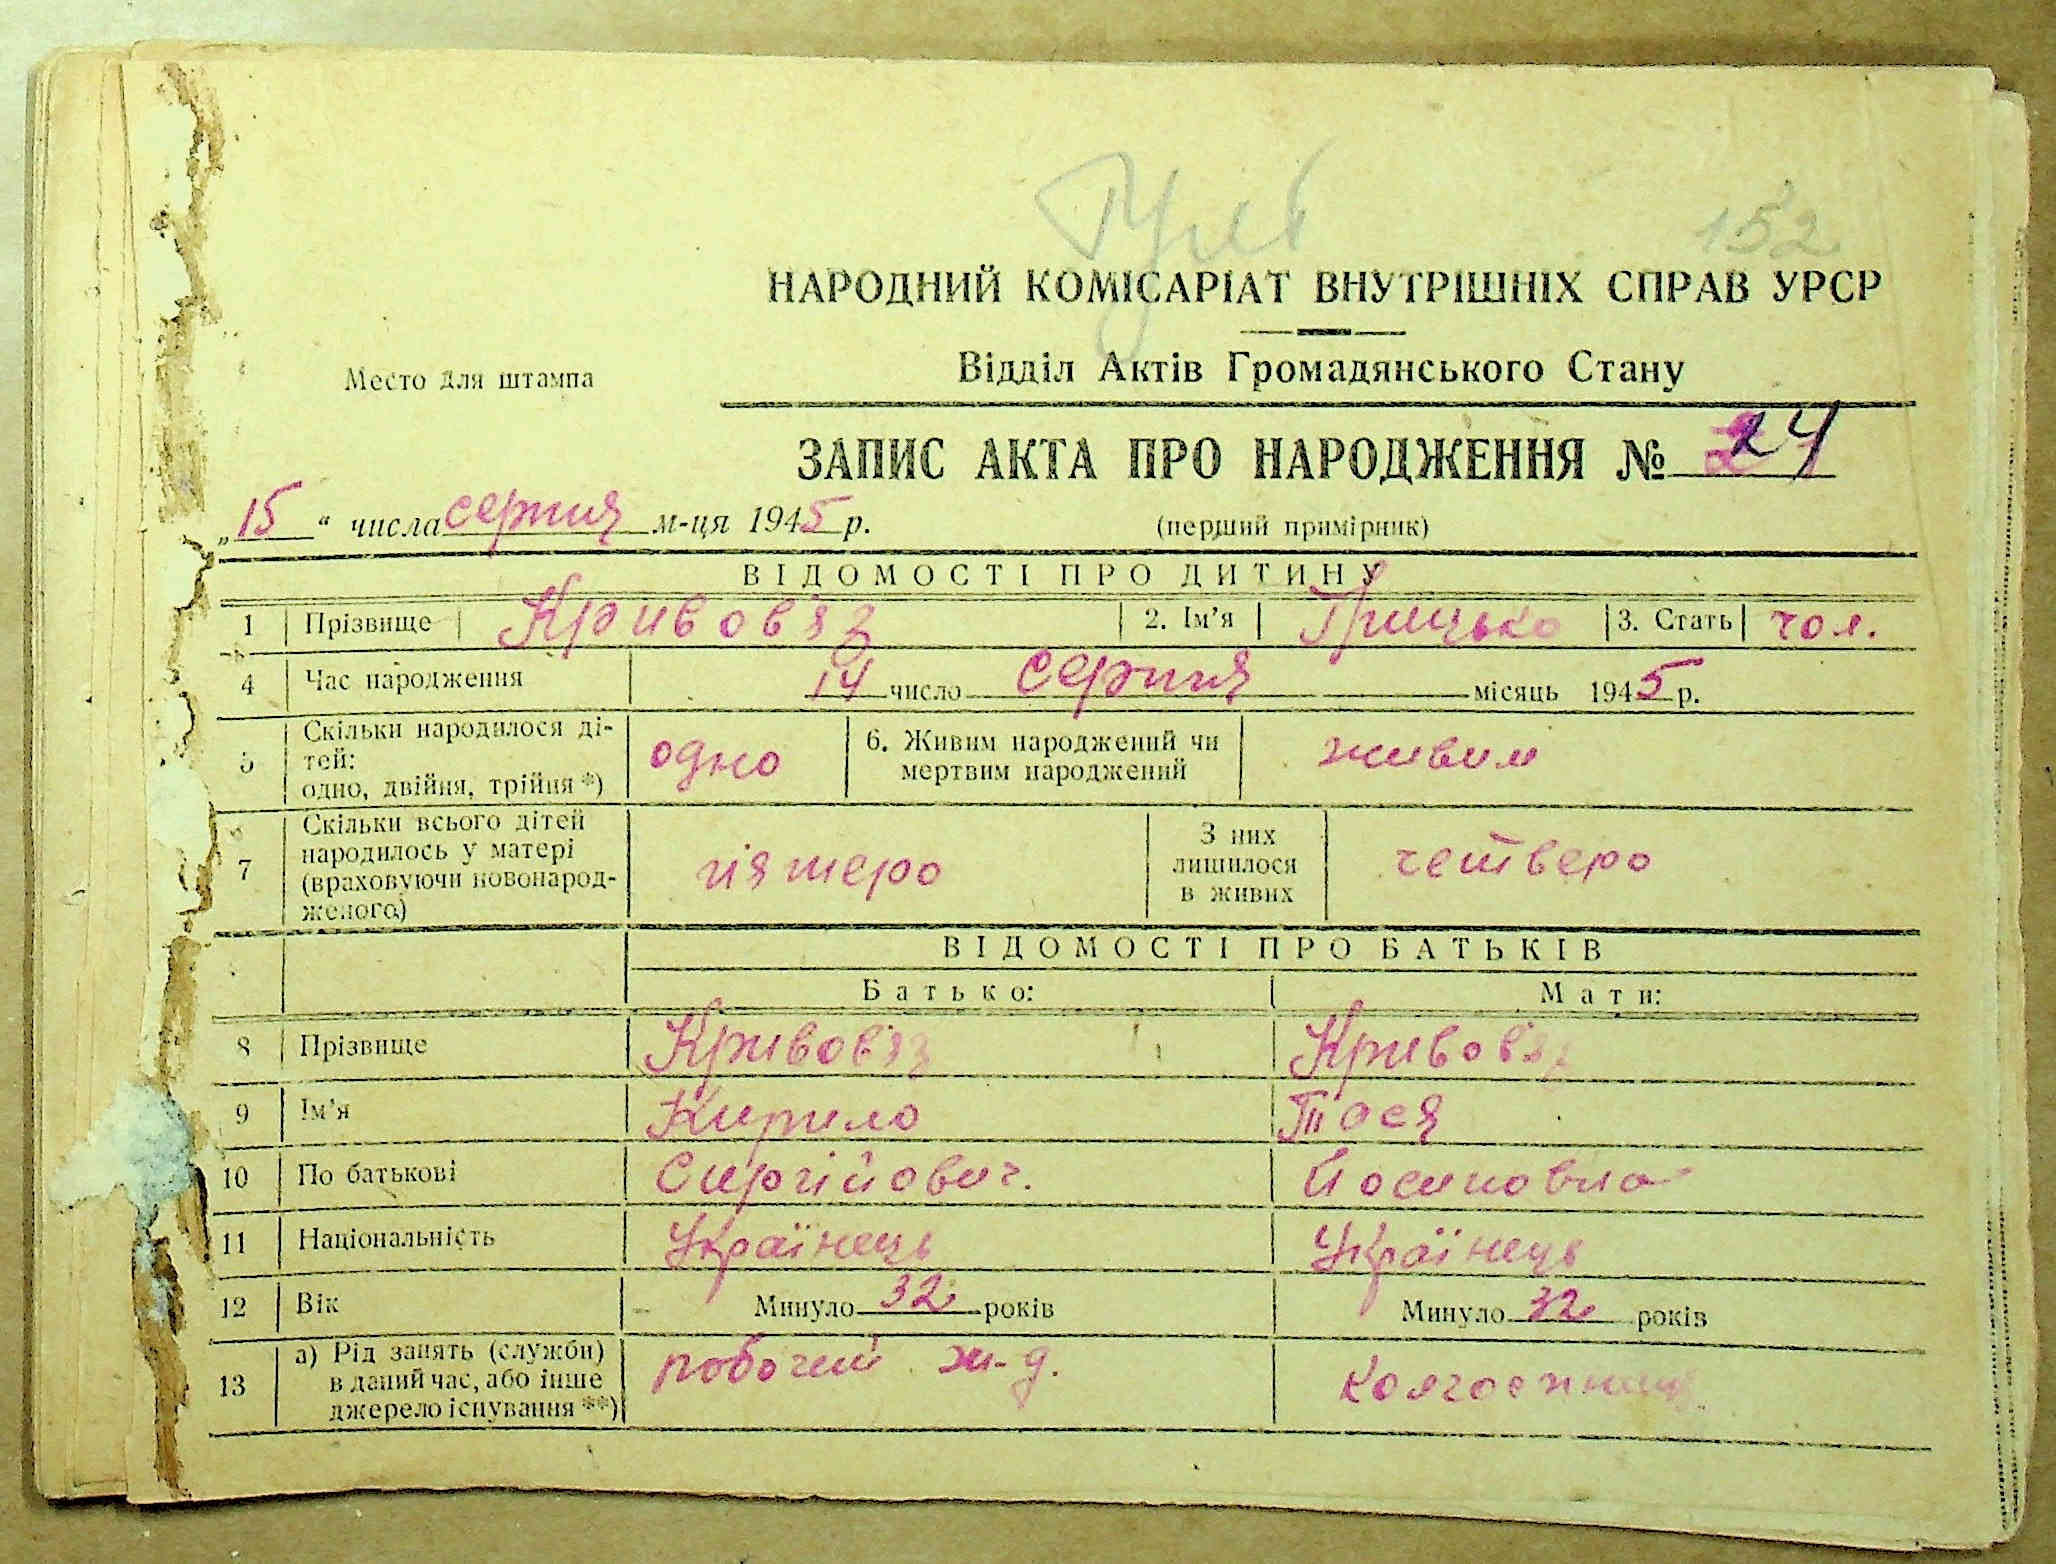 152
НАРОДНИЙ КОМІСАРІАТ ВНУТРІШНІХ СПРАВ УРСР
Место для штампа
Відділ Актів Громадянського Стану
ЗАПИС АКТА ПРО НАРОДЖЕННЯ № 24
„15“ числа серпня м-ця 1945 р.
(перший примірник)
ВІДОМОСТІ ПРО ДИТИНУ
1 Прізвище Кривов'яз 2. Ім'я Грицько 3. Стать чол.
4 Час народження 14 число серпня місяць 1945 р.
5 Скільки народилося ді-
тей:
одно, двійня, трійня *) одно
6. Живим народжений чи
мертвим народжений живим
7 Скільки всього дітей
народилось у матері
(враховуючи новонарод-
женого) пятеро
З них
лишилося
в живих четверо
ВІДОМОСТІ ПРО БАТЬКІВ
Батько: Мати:
8 Прізвище Кривов'яз Кривов'яз
9 Ім'я Кирило Тося
10 По батькові Сиргійович. Йосиповна
11 Національність Українець Українець
12 Вік Минуло 32 років Минуло 32 років
13 а) Рід занять (служби)
в даний час, або інше
джерело існування **) робочий ж-д. колгоспниця